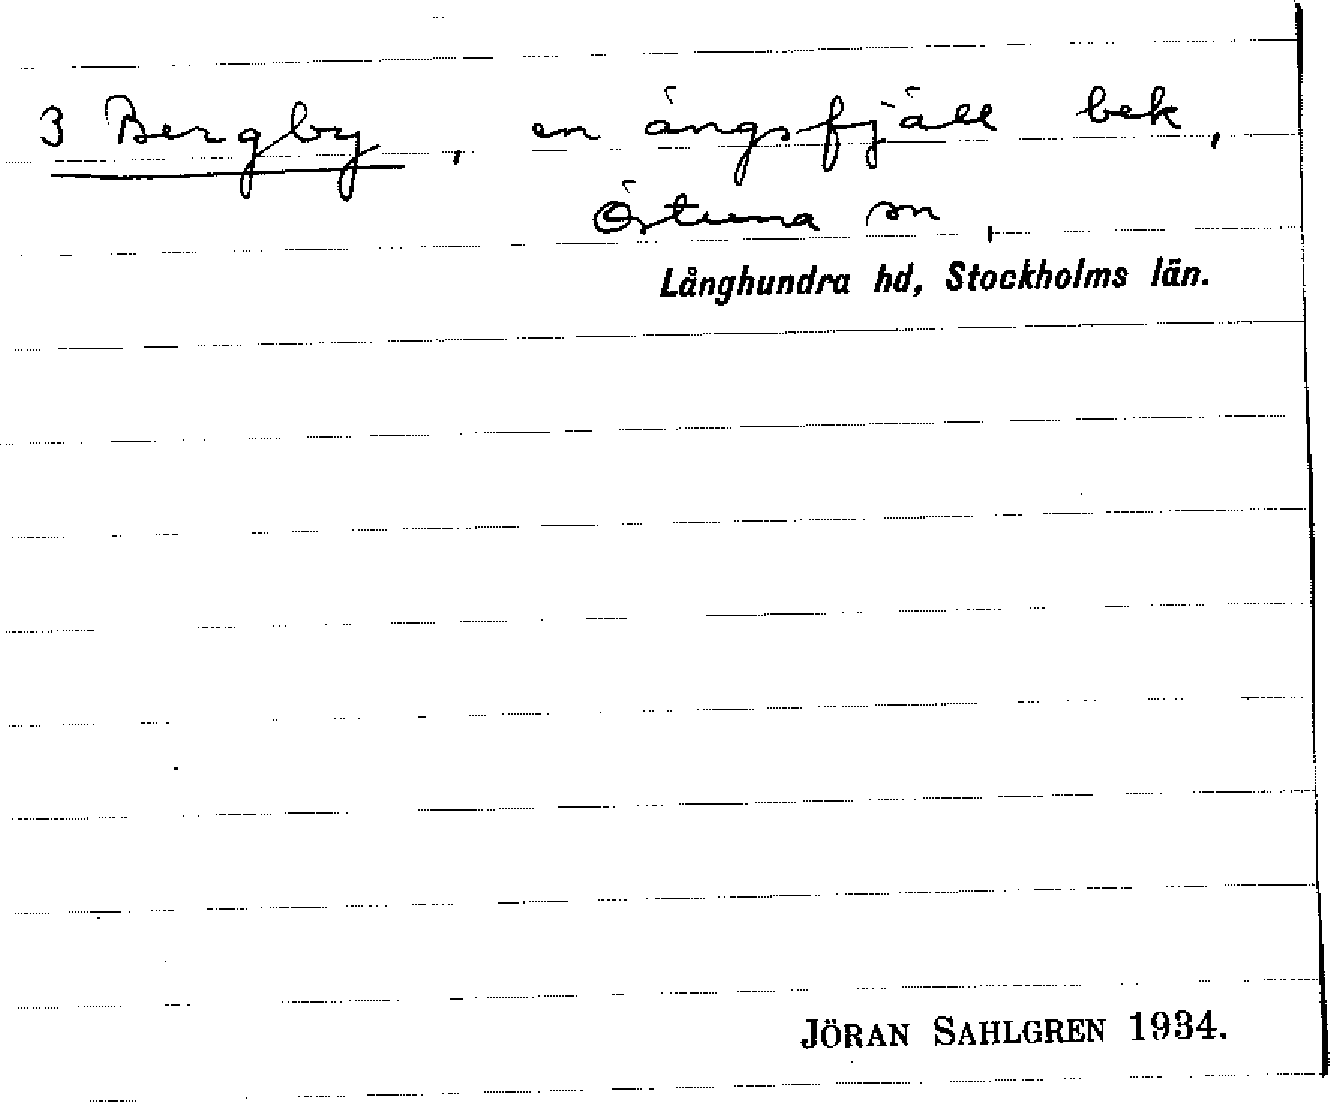 3 Bergby, en ängsfjäll bek,
Östuna sn,
Långhundra hd, Stockholms län.
JÖRAN SAHLGREN 1934.